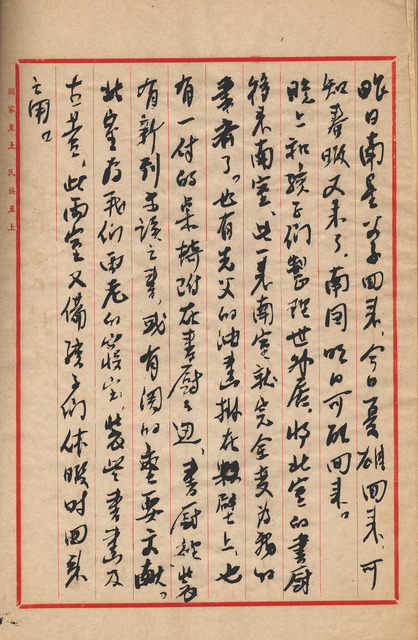 昨日南星父子回来，今日夏雄回来，可
知春暇又来了。南周明日可能回来。
晚上和孩子们製理世外居，将北室的書厨
移来南室，此一来南室就完全变为我的
書斋了。也有先父的油画掛在粉壁上，也
有一付的桌椅附在書厨之边，書厨裡装
有新刊未读之書，或有关的重要文献。
北室为我们两老的寝室，装些書画及
古董，此两室又備孩子们休暇时回来
之用。
國家至上 民族至上